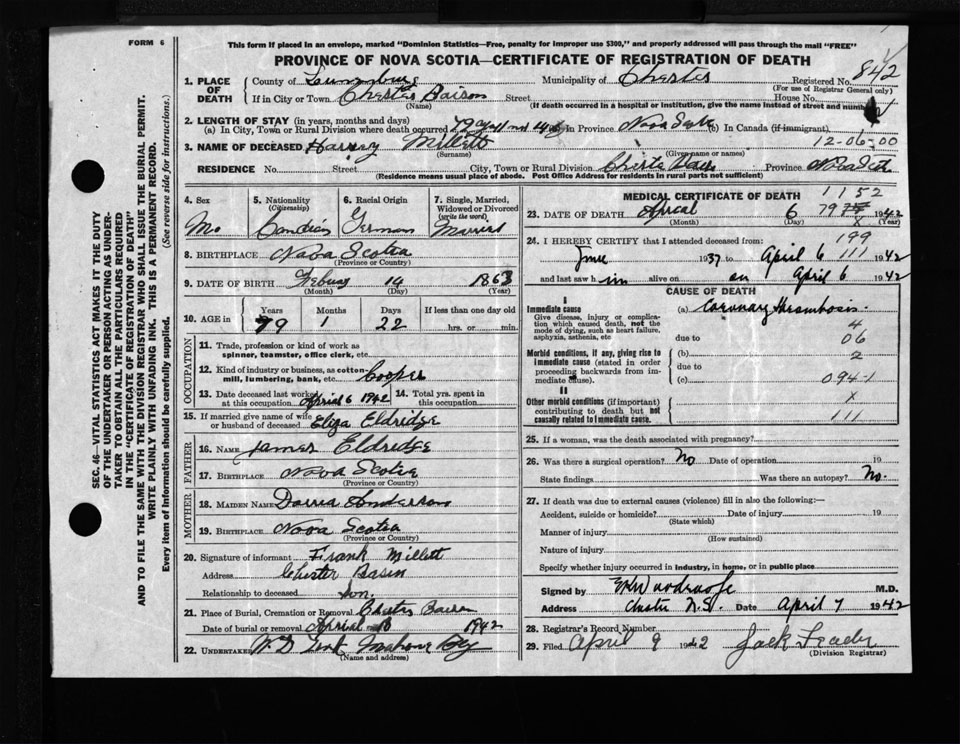 FORM 6
This form if placed in an envelope, marked "Dominion Statistics—Free, penalty for improper use $300," and properly addressed will pass through the mail "FREE"
PROVINCE OF NOVA SCOTIA—CERTIFICATE OF REGISTRATION OF DEATH
1. PLACE OF DEATH County of Lunenburg Municipality of Chester Registered No. 842
(For use of Registrar General only)
If in City or Town Chester Street House No.
(Name) (If death occurred in a hospital or institution, give the name instead of street and number)
2. LENGTH OF STAY (in years, months and days)
(a) In City, Town or Rural Division where death occurred 79 in Province (b) In Canada (if immigrant)
12-06-00
3. NAME OF DECEASED Harvey Millett
(Surname) (Given name or names)
RESIDENCE No. Street City, Town or Rural Division Province
(Residence means usual place of abode. Post Office Address for residents in rural parts not sufficient)
4. Sex 5. Nationality (Citizenship) 6. Racial Origin 7. Single, Married, Widowed or Divorced (write the word)
German
8. BIRTHPLACE Nova Scotia
(Province or Country)
9. DATE OF BIRTH 14 1863
(Month) (Day) (Year)
10. AGE in Years Months Days If less than one day old
79 1 22 hrs. or min.
OCCUPATION
11. Trade, profession or kind of work as spinner, teamster, office clerk, etc
12. Kind of industry or business, as cotton-mill, lumbering, bank, etc. Cooper
13. Date deceased last worked at this occupation April 6 1942 14. Total yrs. spent in this occupation
15. If married give name of wife or husband of deceased Eliza Eldridge
FATHER
16. NAME James Eldridge
17. BIRTHPLACE Nova Scotia
(Province or Country)
MOTHER
18. MAIDEN NAME
19. BIRTHPLACE Nova Scotia
(Province or Country)
20. Signature of informant Frank Millett
Address Chester Basin
Relationship to deceased Son.
21. Place of Burial, Cremation or Removal Chester
Date of burial or removal 1942
22. UNDERTAKER Mahone Bay
(Name and address)
MEDICAL CERTIFICATE OF DEATH
1152
23. DATE OF DEATH April 6 1942
(Month) (Day) (Year)
24. I HEREBY CERTIFY that I attended deceased from:
199
June 1937 to April 6 1942
111
and last saw h im alive on on April 6 1942
CAUSE OF DEATH
I
Immediate cause (a) Coronary thrombosis
Give disease, injury or complication which caused death, not the mode of dying, such as heart failure, asphyxia, asthenia, etc
4
due to 06
Morbid conditions, if any, giving rise to immediate cause (stated in order proceeding backwards from immediate cause). (b) 2
due to
(c) 094-1
II
Other morbid conditions (if important) contributing to death but not causally related to immediate cause. x
111
25. If a woman, was the death associated with pregnancy?
26. Was there a surgical operation? No Date of operation 19
State findings Was there an autopsy? No.
27. If death was due to external causes (violence) fill in also the following:—
Accident, suicide or homicide? Date of injury 19
(State which)
Manner of injury
(How sustained)
Nature of injury
Specify whether injury occurred in industry, in home, or in public place
Signed by M.D.
Address Chester N.S. Date April 7 1942
28. Registrar's Record Number
29. Filed April 9 1942 Jack
(Division Registrar)
SEC. 46—VITAL STATISTICS ACT MAKES IT THE DUTY
OF THE UNDERTAKER OR PERSON ACTING AS UNDERTAKER TO OBTAIN ALL THE PARTICULARS REQUIRED
IN THE "CERTIFICATE OF REGISTRATION OF DEATH"
AND TO FILE THE SAME WITH THE DIVISION REGISTRAR WHO SHALL ISSUE THE BURIAL PERMIT.
WRITE PLAINLY WITH UNFADING INK. THIS IS A PERMANENT RECORD.
Every item of Information should be carefully supplied. (See reverse side for instructions.)